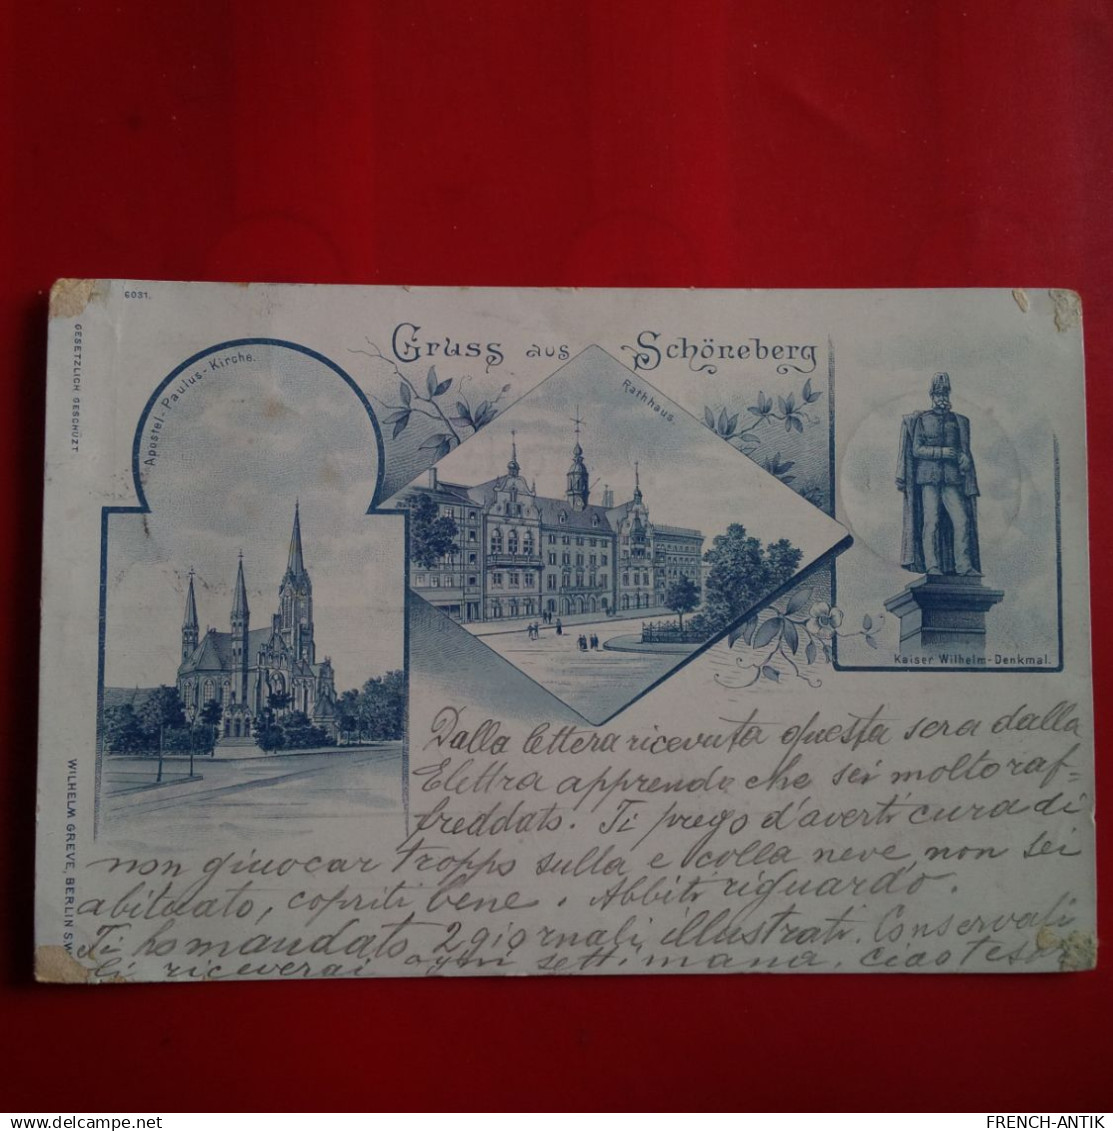 6031.
GESETZLICH GESCHÜZT
Gruss aus Schöneberg
Apostel-Paulus-Kirche.
Rathhaus.
Kaiser Wilhelm-Denkmal.
WILHELM GREVE, BERLIN S.W.
Dalla lettera ricevuta questa sera dalla
Elettra apprendo che sei molto raf-
freddato. Ti prego d'averti cura di
non giuocar troppo sulla e colla neve, non sei
abituato, copriti bene. Abbiti riguardo.
Ti ho mandato 2 giornali illustrati. Conservali
li riceverai ogni settimana, ciao tesor
FRENCH-ANTIK